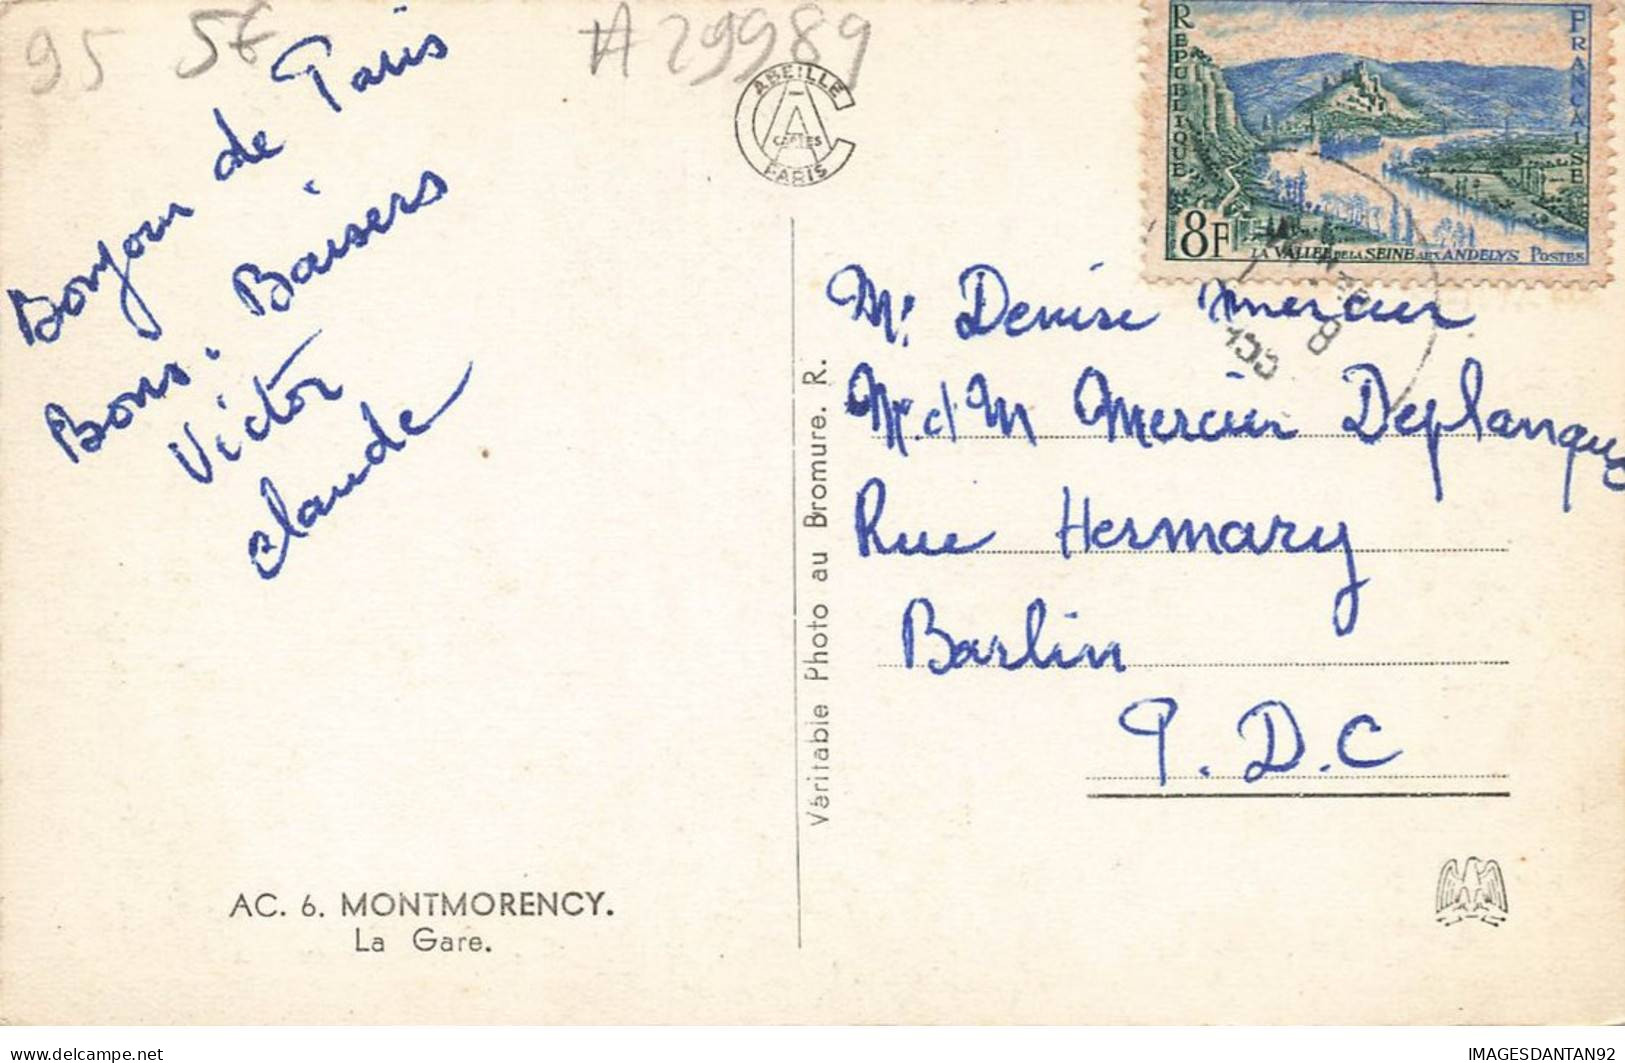 95 5€ A 29989
ABEILLE
CARTES
PARIS
RÉPUBLIQUE
FRANÇAISE
8F
LA VALLÉE DE LA SEINE AUX ANDELYS POSTES
Bonjour de Paris
Bons. Baisers
Victor
claude
Véritable Photo au Bromure. R.
Denise Mercier
Mercier Deplanque
Rue Hermary
Barlin
P. D. C
AC. 6. MONTMORENCY.
La Gare.
delcampe.net
IMAGESDANTAN92